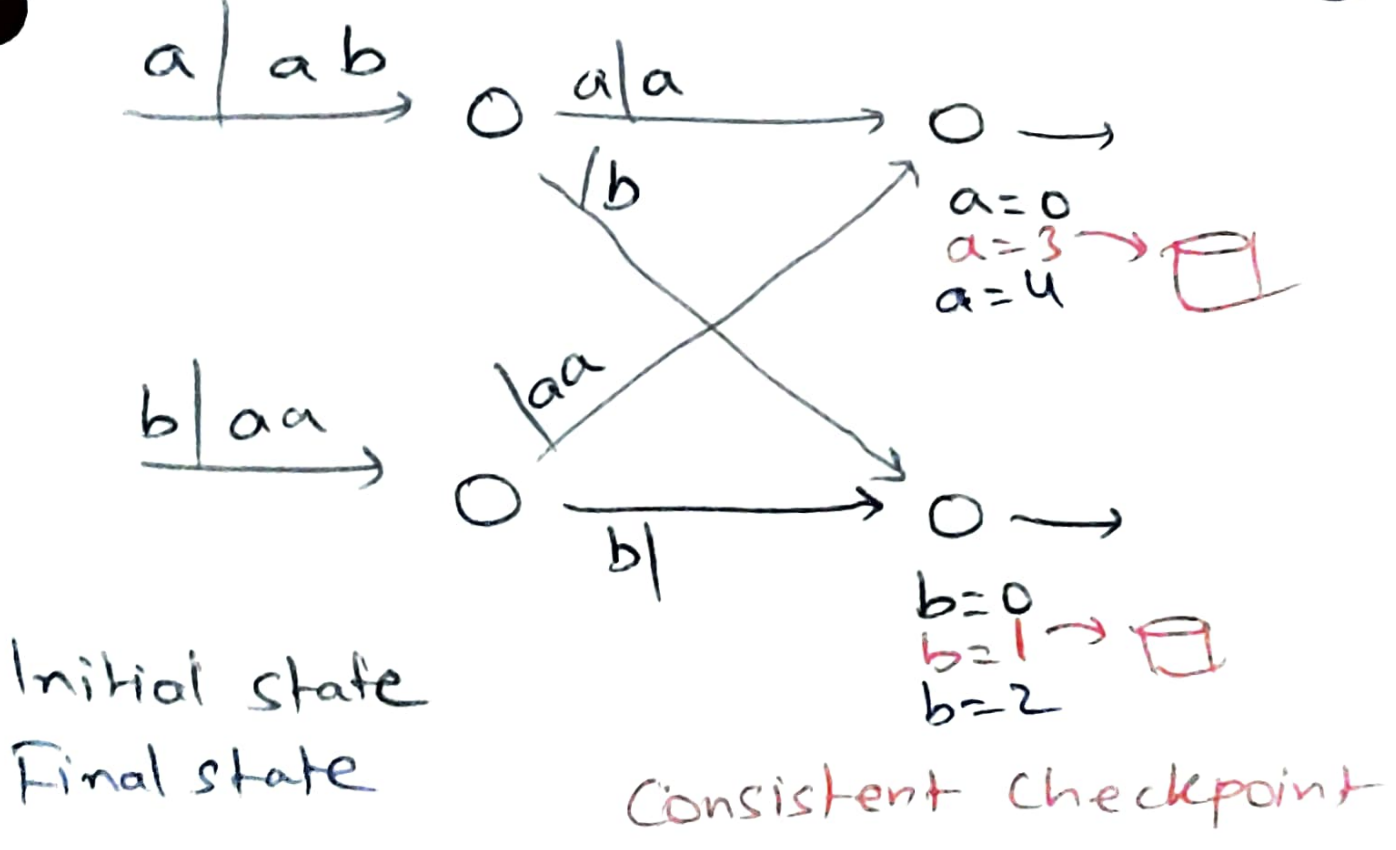 a| ab
a|a
/b
a=0
a=3
a=4
|aa
b|aa
b|
b=0
b=1
b=2
Initial state
Final state
Consistent Checkpoint